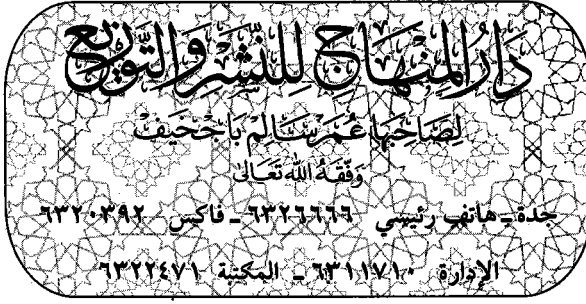 دَارُ المِنْهَاجِ لِلنَّشْرِ وَالتَّوْزِيعِ
لِصَاحِبِهَا عُمَر سَالِم بَاجِخَيف
وَفَّقَهُ اللهُ تَعَالَىٰ
جدة ـ هاتف رئيسي ٦٣٢٦٦٦٦ ـ فاكس ٦٣٢٠٣٩٢
الإدارة ٦٣١١٧١٠ ـ المكتبة ٦٣٢٢٤٧١